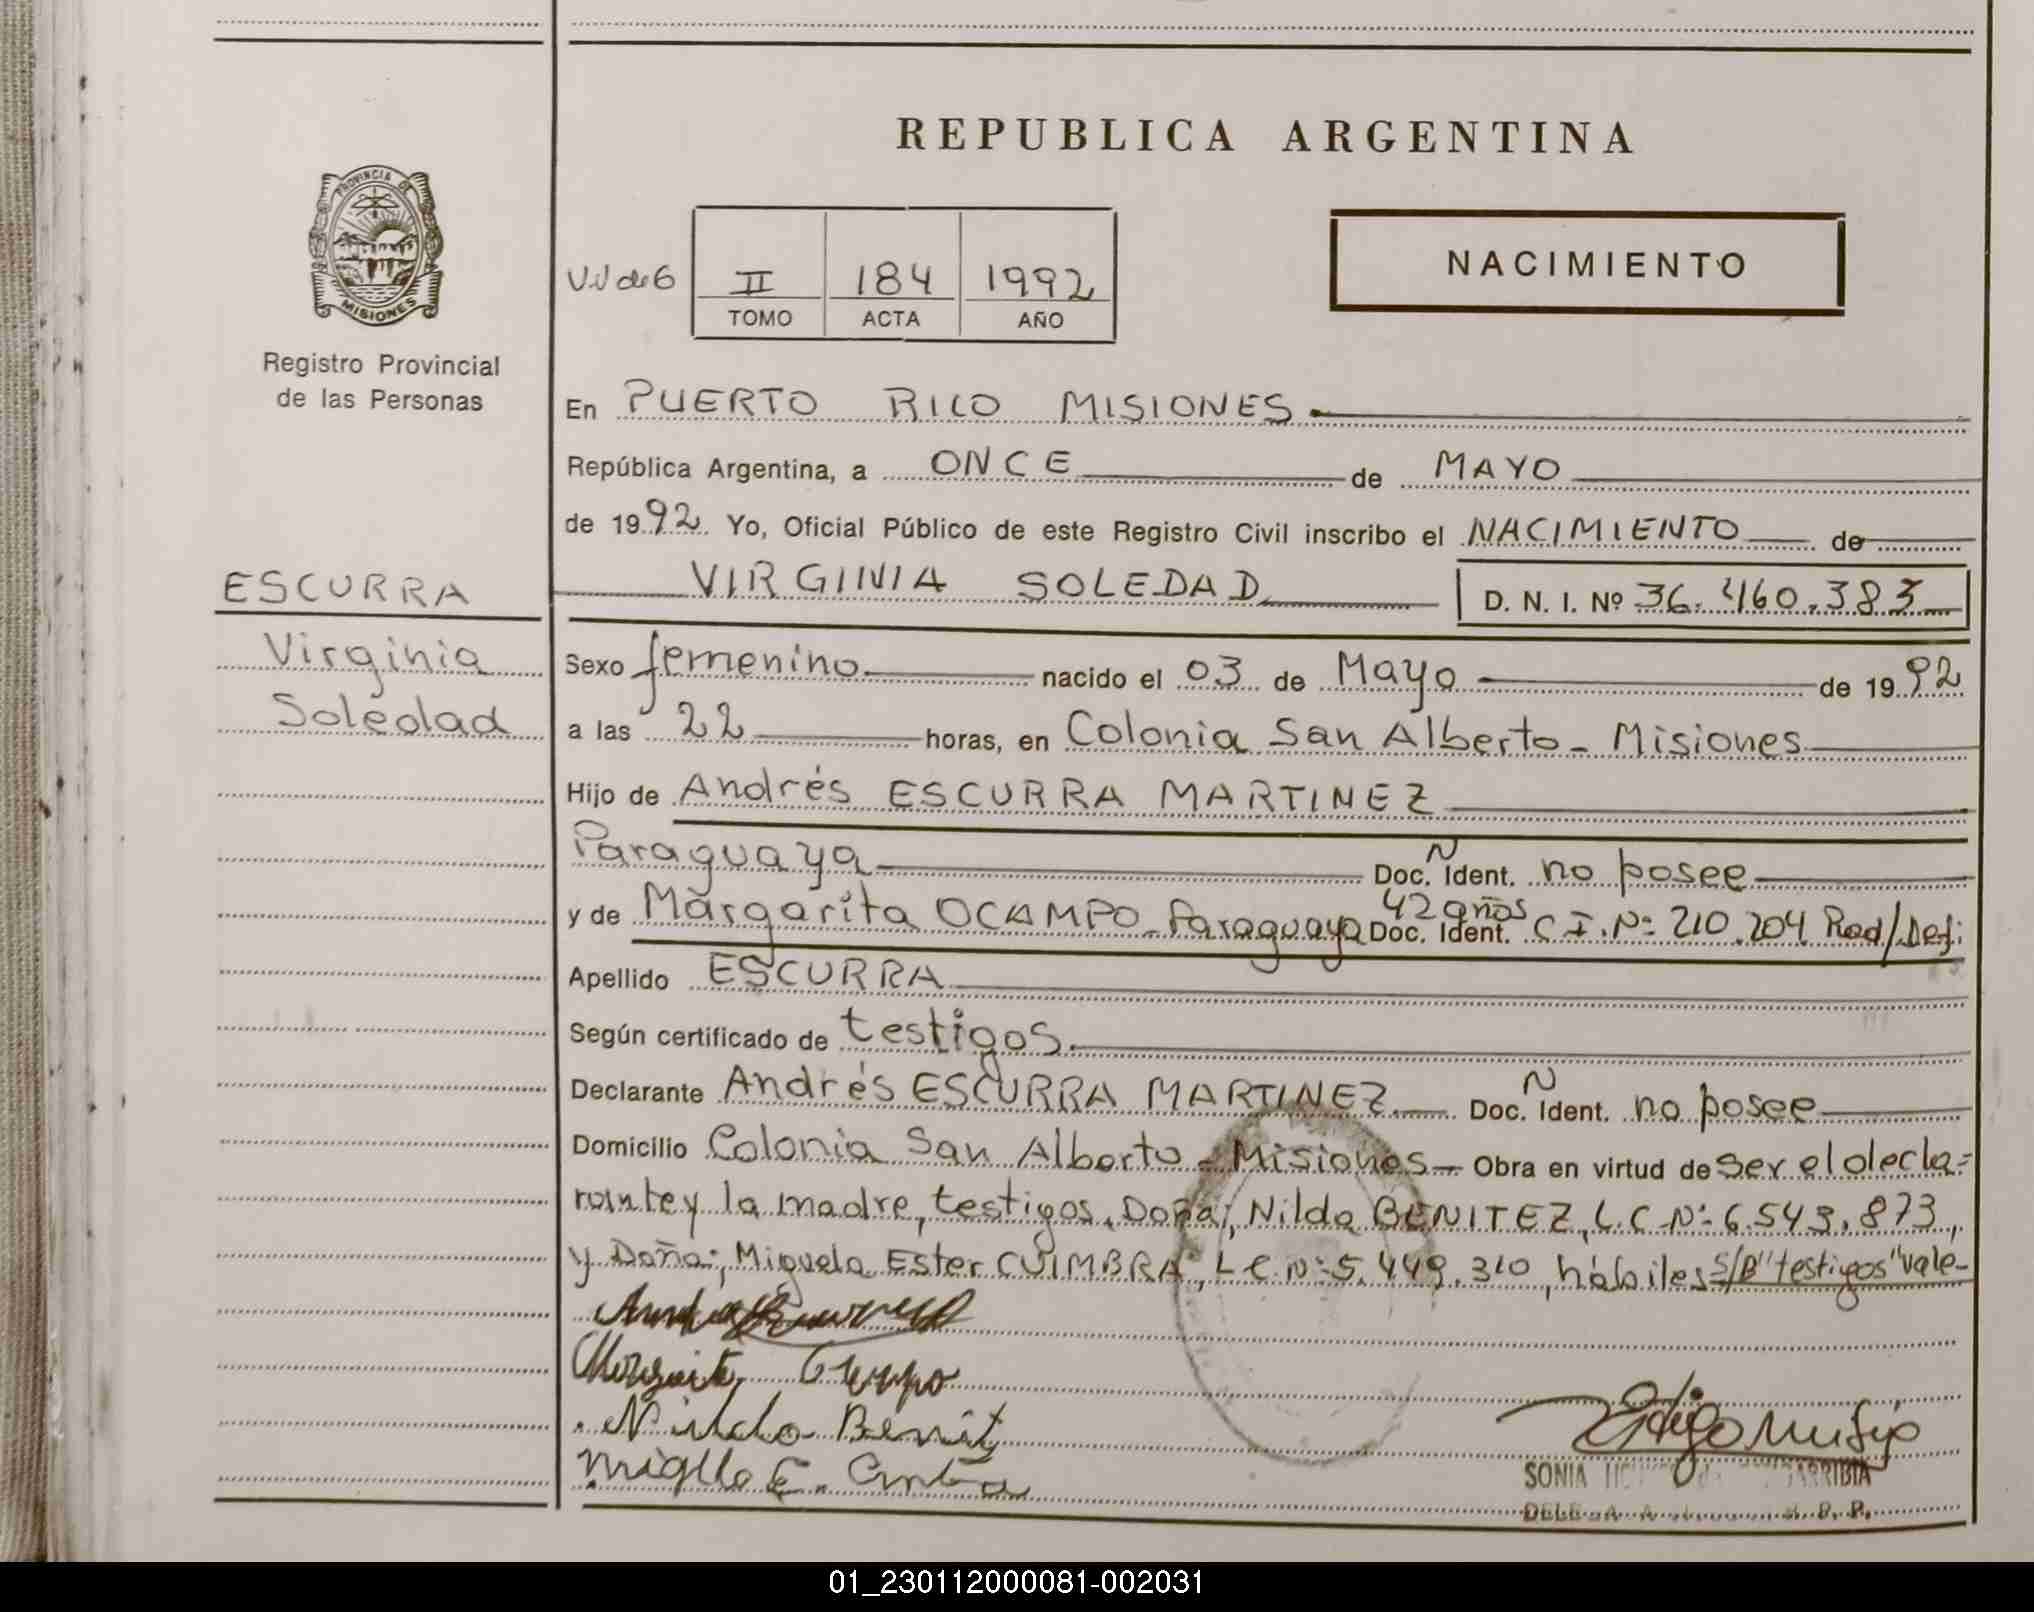 REPUBLICA ARGENTINA
PROVINCIA DE
MISIONES
Registro Provincial
de las Personas
NACIMIENTO
II 184 1992
TOMO ACTA AÑO
En PUERTO RICO MISIONES
República Argentina, a ONCE de MAYO
de 1992 Yo, Oficial Público de este Registro Civil inscribo el NACIMIENTO de
VIRGINIA SOLEDAD D. N. I. Nº 36.460.383
ESCURRA
Virginia
Soledad
Sexo femenino nacido el 03 de Mayo de 1992
a las 22 horas, en Colonia San Alberto - Misiones
Hijo de Andrés ESCURRA MARTINEZ
Paraguaya Doc. Ident. no posee
y de Margarita OCAMPO - Paraguaya 42 años Doc. Ident. C.I. Nº 210.204 Red/Def:
Apellido ESCURRA
Según certificado de testigos
Declarante Andrés ESCURRA MARTINEZ Doc. Ident. no posee
Domicilio Colonia San Alberto - Misiones - Obra en virtud de ser el decla=
rante y la madre, testigos, Doña; Nilda BENITEZ, L.C. Nº 6.543.873,
y Doña; Miguela Ester CUIMBRA, L.C. Nº 5.449.310, hábiles S/B "testigos" vale-
Nildo Benit
SONIA
01_230112000081-002031